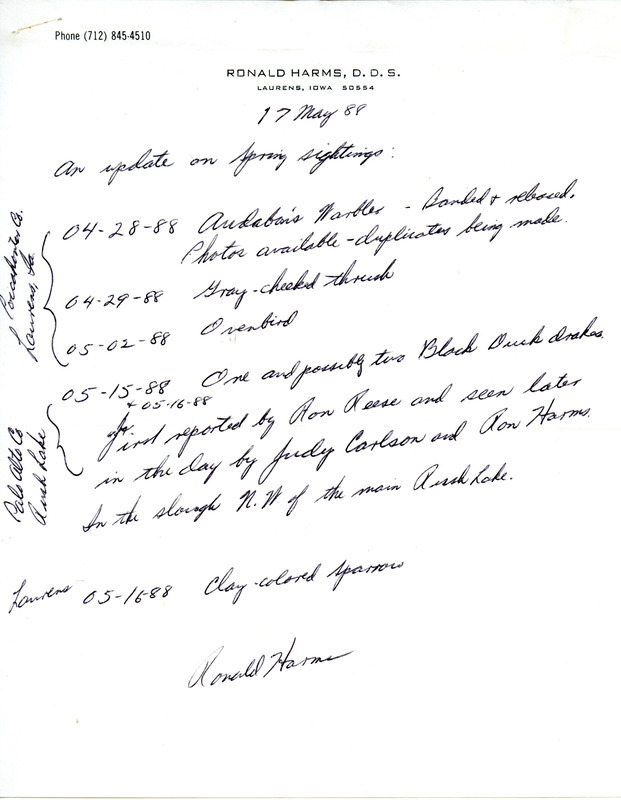 Phone (712) 845-4510
RONALD HARMS, D.D.S.
LAURENS, IOWA 50554
17 May 88
An update on Spring sightings:
Pocahontas Co.
Laurens, Ia
04-28-88 Audabon's Warbler - Banded & released.
Photos available - duplicates being made.
04-29-88 Gray-cheeked thrush
05-02-88 Ovenbird
Palo Alto Co
Rush Lake
05-15-88 One and possibly two Black Duck drakes.
+ 05-16-88
First reported by Ron Reese and seen later
in the day by Judy Carlson and Ron Harms.
In the slough N.W of the main Rush Lake.
Laurens 05-16-88 Clay-colored Sparrow
Ronald Harms